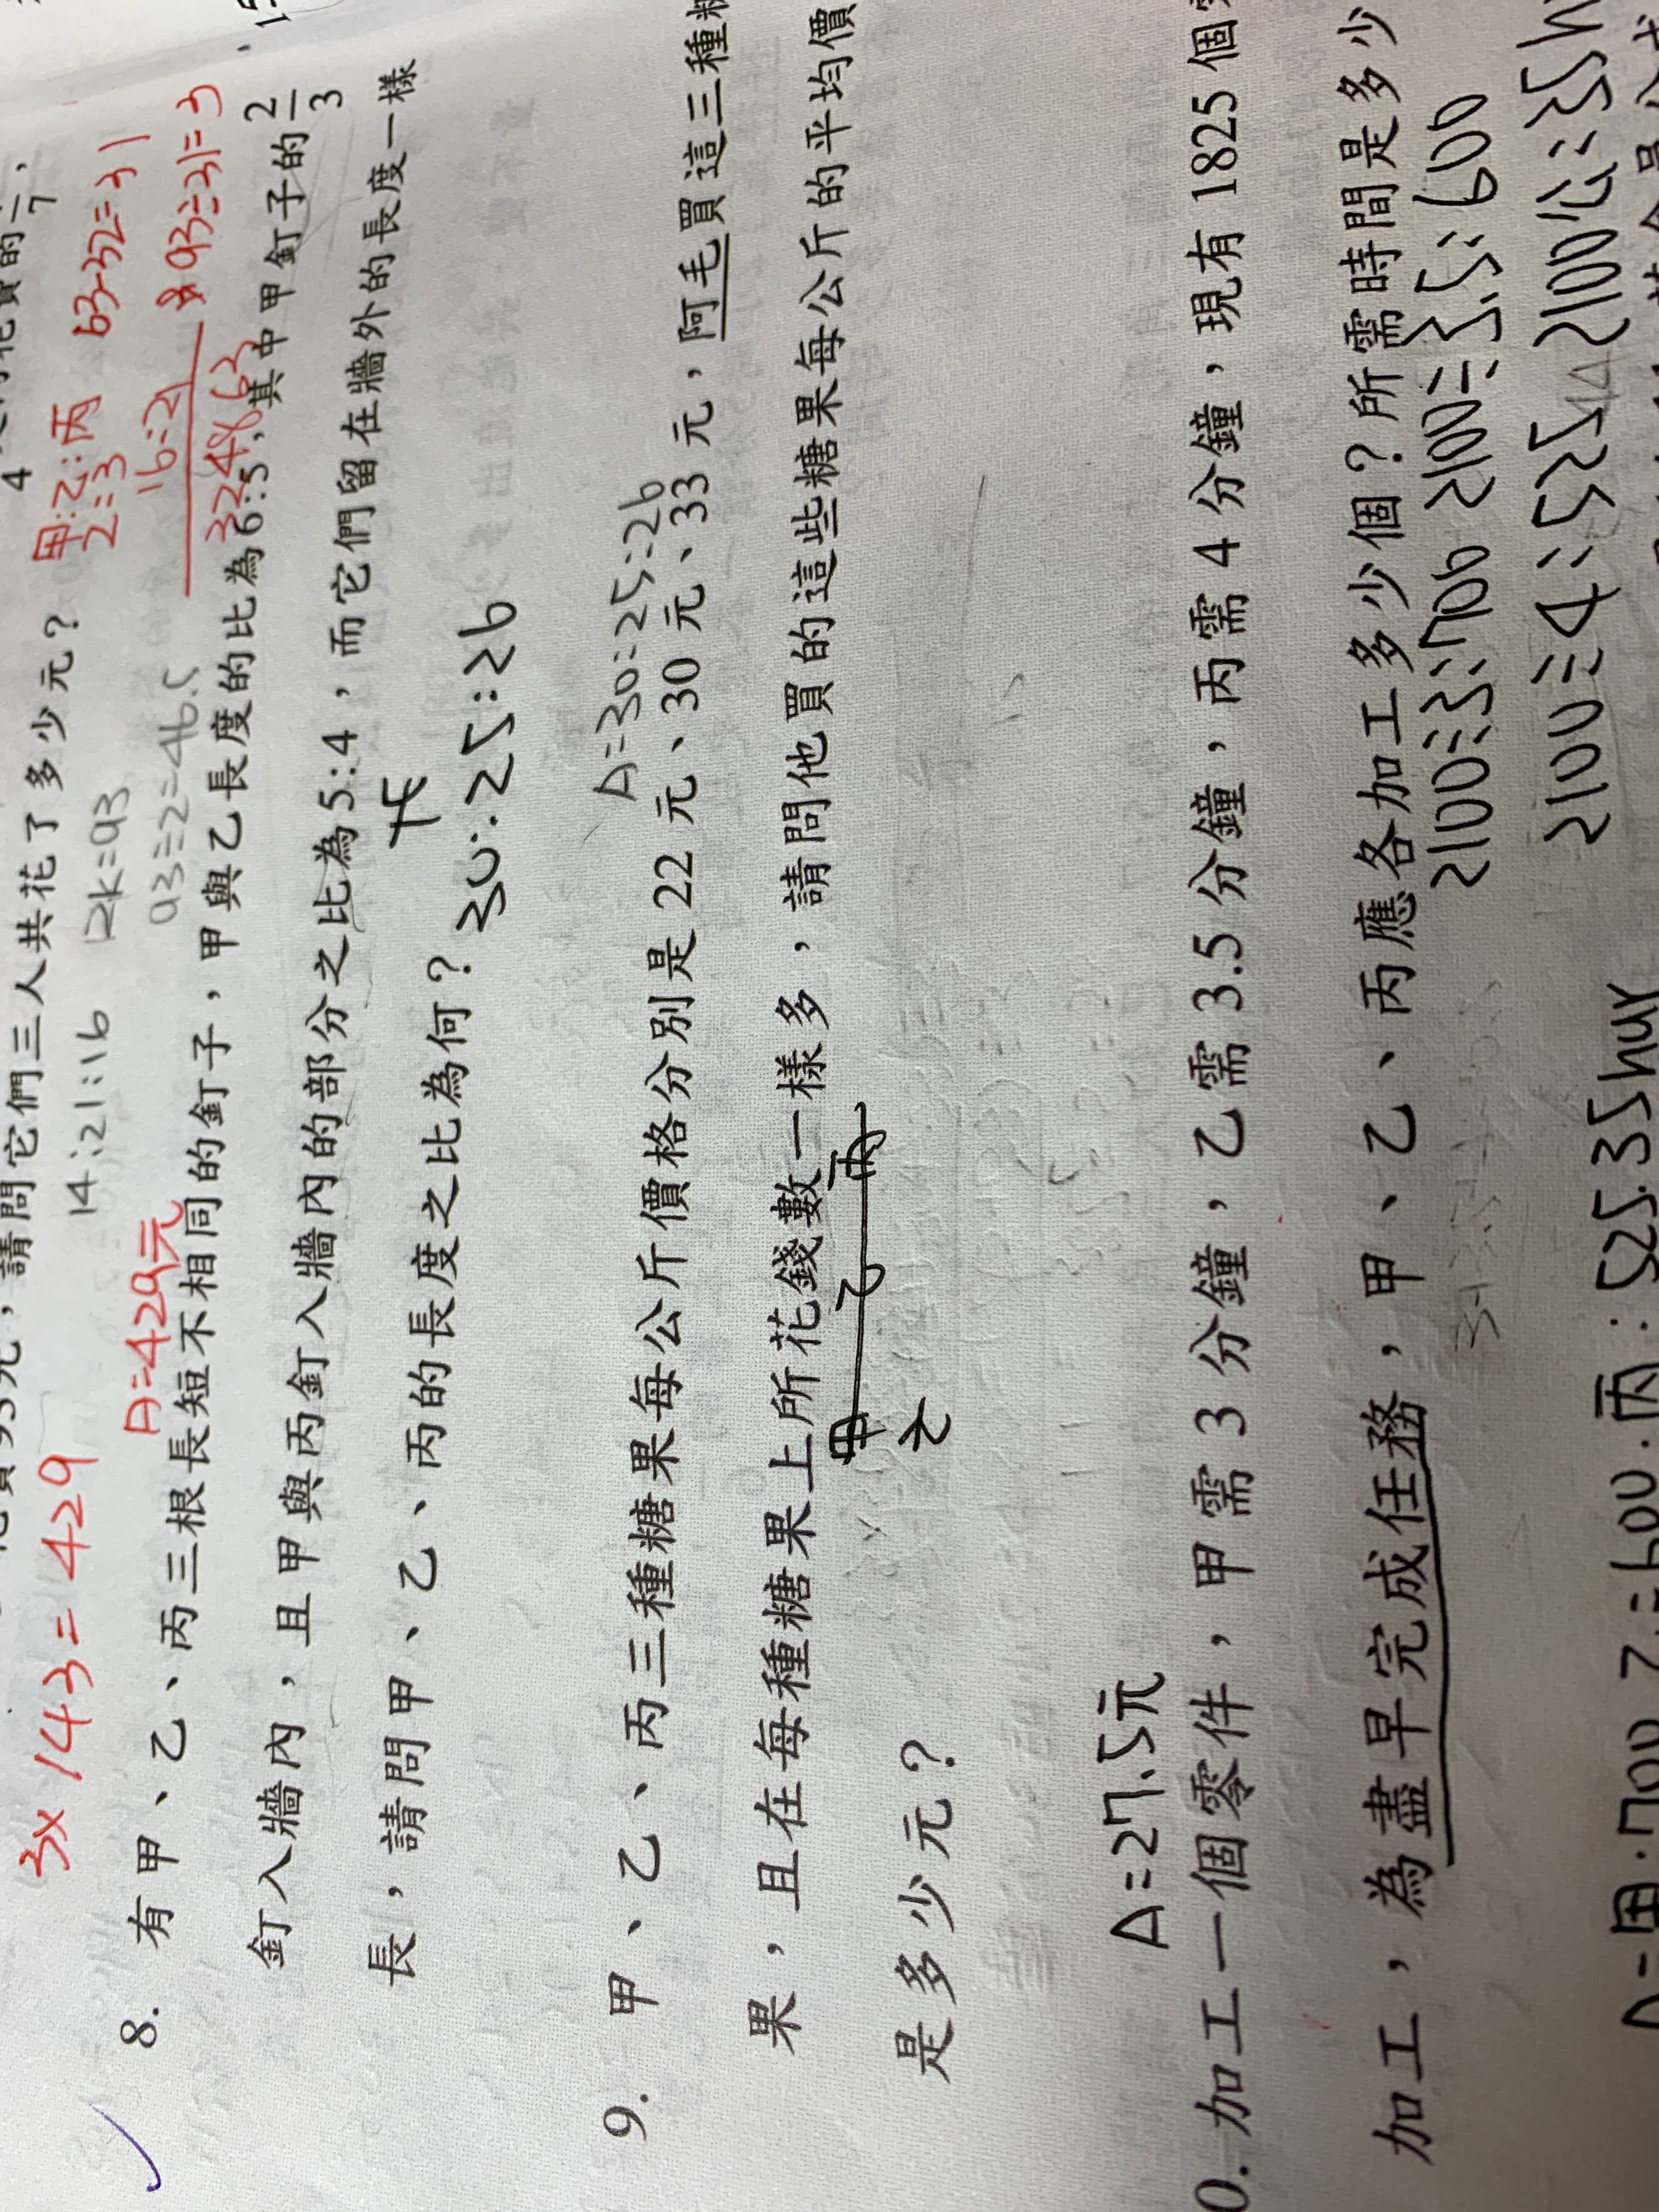 請問它們三人共花了多少元?
3x143=429
A=429元
14:21:16
12k=93
93÷2=46.5
甲:乙:丙
2:3
16:21
32 48 63
63-32=31
93÷31=3
8. 有甲、乙、丙三根長短不相同的釘子,甲與乙長度的比為6:5,其中甲釘子的2/3
釘入牆內,且甲與丙釘入牆內的部分之比為5:4,而它們留在牆外的長度一樣
長,請問甲、乙、丙的長度之比為何?
30:25:26
A=30:25:26
9. 甲、乙、丙三種糖果每公斤價格分別是22元、30元、33元,阿毛買這三種
果,且在每種糖果上所花錢數一樣多,請問他買的這些糖果每公斤的平均價
甲 乙 丙
是多少元?
A=27.5元
0. 加工一個零件,甲需3分鐘,乙需3.5分鐘,丙需4分鐘,現有1825個
加工,為盡早完成任務,甲、乙、丙應各加工多少個?所需時間是多少
2100÷3=700 2100÷3.5=600
2100÷4=525
A=甲:700 乙:600 丙:525.35hur